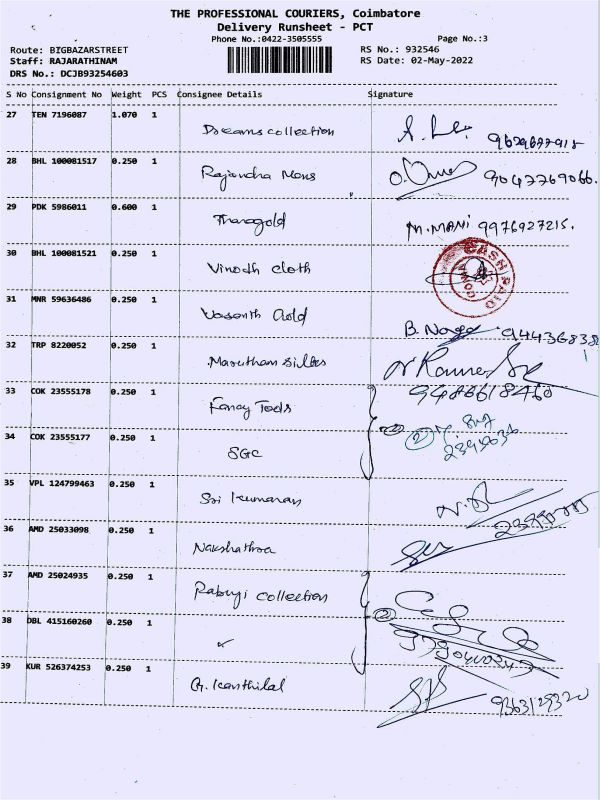 THE PROFESSIONAL COURIERS, Coimbatore
Delivery Runsheet - PCT
Phone No.:0422-3505555 Page No.:3
Route: BIGBAZARSTREET RS No.: 932546
Staff: RAJARATHINAM RS Date: 02-May-2022
DRS No.: DCJB93254603
S No Consignment No Weight PCS Consignee Details Signature
27 TEN 7196087 1.070 1
Dreams collection 9629677918
28 BHL 100081517 0.250 1
Rajendra Mens 9047769066.
29 PDK 5986011 0.600 1
Thangold M.MANI 9976927215.
30 BHL 100081521 0.250 1
Vinodh cloth CASH PAID
31 MNR 59636486 0.250 1
Vasanth Gold B. Naga
32 TRP 8220052 0.250 1
Marutham Silks
33 COK 23555178 0.250 1 9486618460
Fancy Tods
34 COK 23555177 0.250 1 2
SGC
35 VPL 124799463 0.250 1
Sri kumaran
36 AMD 25033098 0.250 1
Nakshathra
37 AMD 25024935 0.250 1
collection
38 DBL 415160260 0.250 1 2
39 KUR 526374253 0.250 1
G. Kanthilal